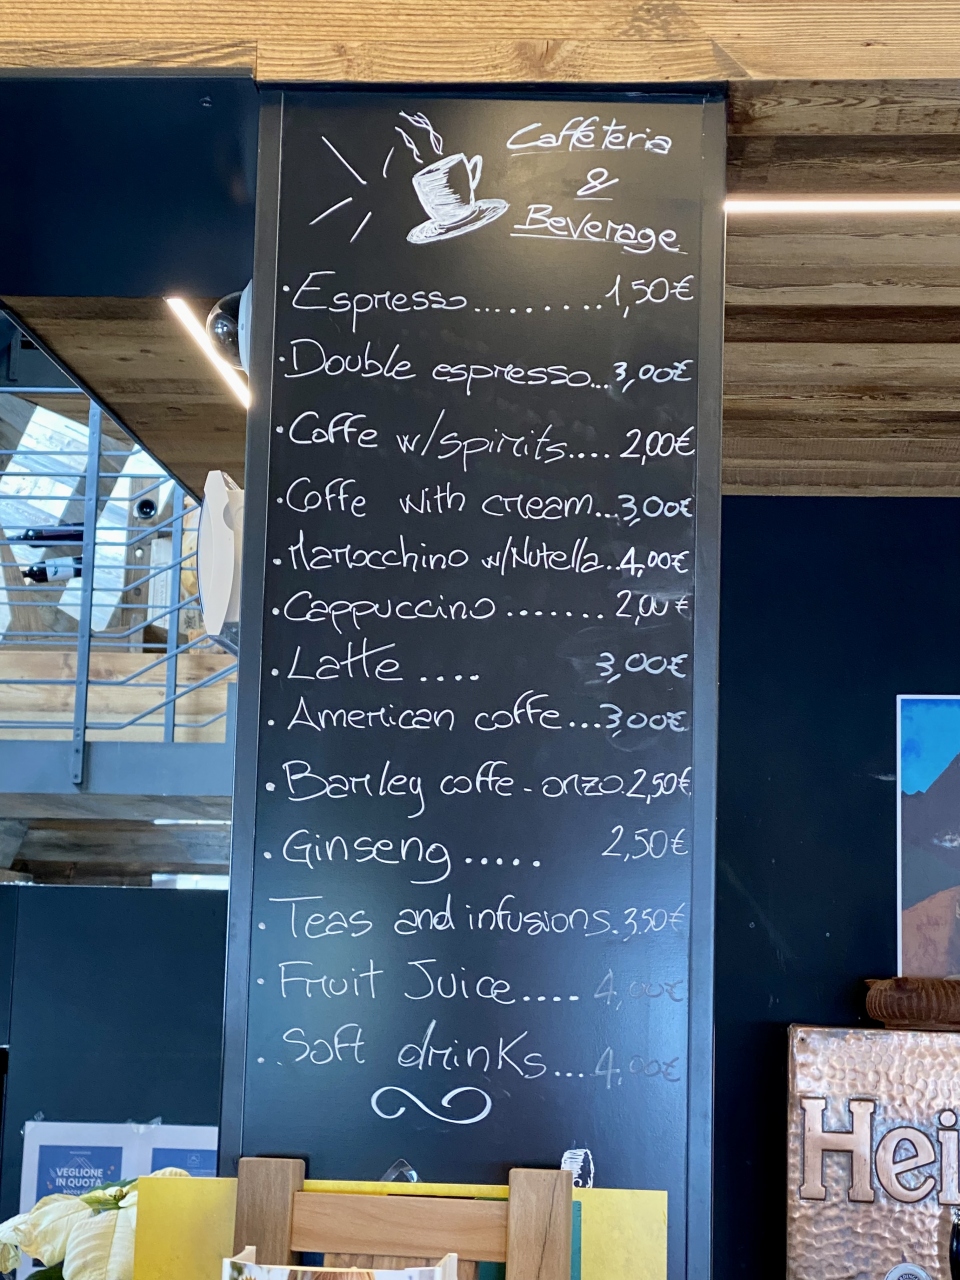 Caffeteria
&
Beverage
· Espresso.........1,50€
· Double espresso...3,00€
· Coffe w/spirits.... 2,00€
· Coffe with cream...3,00€
· Marocchino w/Nutella..4,00€
· Cappuccino ....... 2,00€
· Latte .... 3,00€
· American coffe...3,00€
· Barley coffe - orzo.2,50€
· Ginseng ..... 2,50€
· Teas and infusions.3,50€
· Fruit Juice.... 4,00€
· Soft drinks...4,00€
VEGLIONE
IN QUOTA
Hei